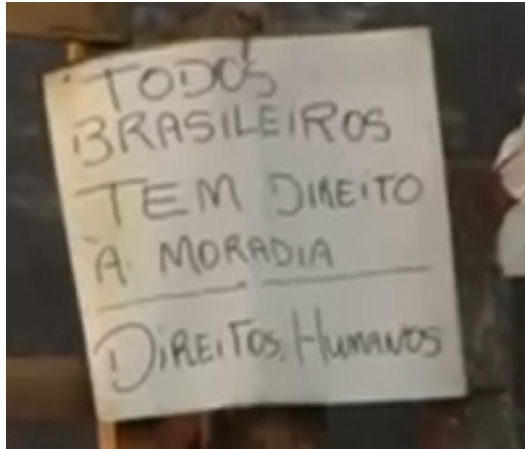 TODOS
BRASILEIROS
TEM DIREITO
À MORADIA
DIREITOS HUMANOS